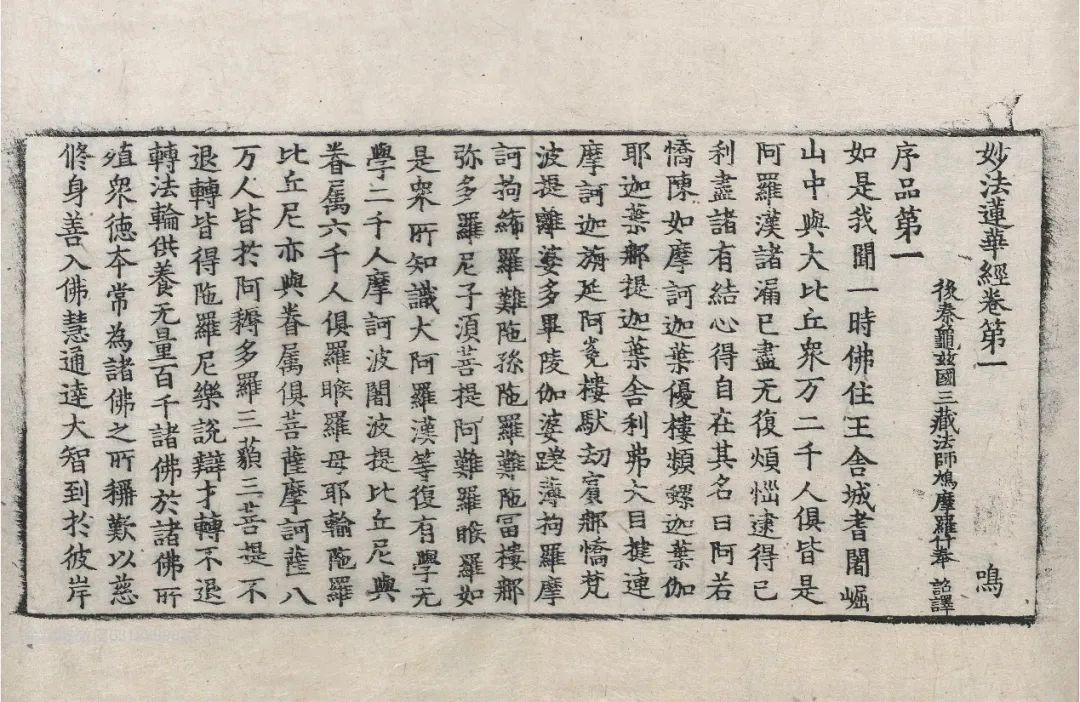 妙法蓮華經卷第一 鳴
後秦龜茲國三藏法師鳩摩羅什奉 詔譯
序品第一
如是我聞一時佛住王舍城耆闍崛
山中與大比丘衆万二千人俱皆是
阿羅漢諸漏已盡无復煩惱逮得已
利盡諸有結心得自在其名曰阿若
憍陳如摩訶迦葉優樓頻螺迦葉伽
耶迦葉那提迦葉舍利弗大目揵連
摩訶迦旃延阿㝹樓馱劫賓那憍梵
波提離婆多畢陵伽婆蹉薄拘羅摩
訶拘絺羅難陁孫陁羅難陁冨樓那
弥多羅尼子湏菩提阿難羅睺羅如
是衆所知識大阿羅漢等復有學无
學二千人摩訶波闍波提比丘尼與
眷属六千人俱羅睺羅母耶輸陁羅
比丘尼亦與眷属俱菩薩摩訶薩八
万人皆於阿耨多羅三藐三菩提不
退轉皆得陁羅尼樂說辯才轉不退
轉法輪供養无量百千諸佛於諸佛所
殖衆德本常為諸佛之所稱歎以慈
脩身善入佛慧通達大智到於彼岸